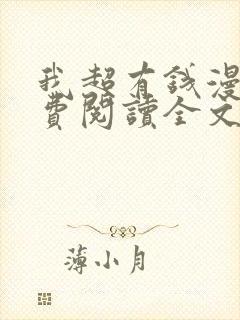 我超有錢漫
費閱讀全文
薄小月